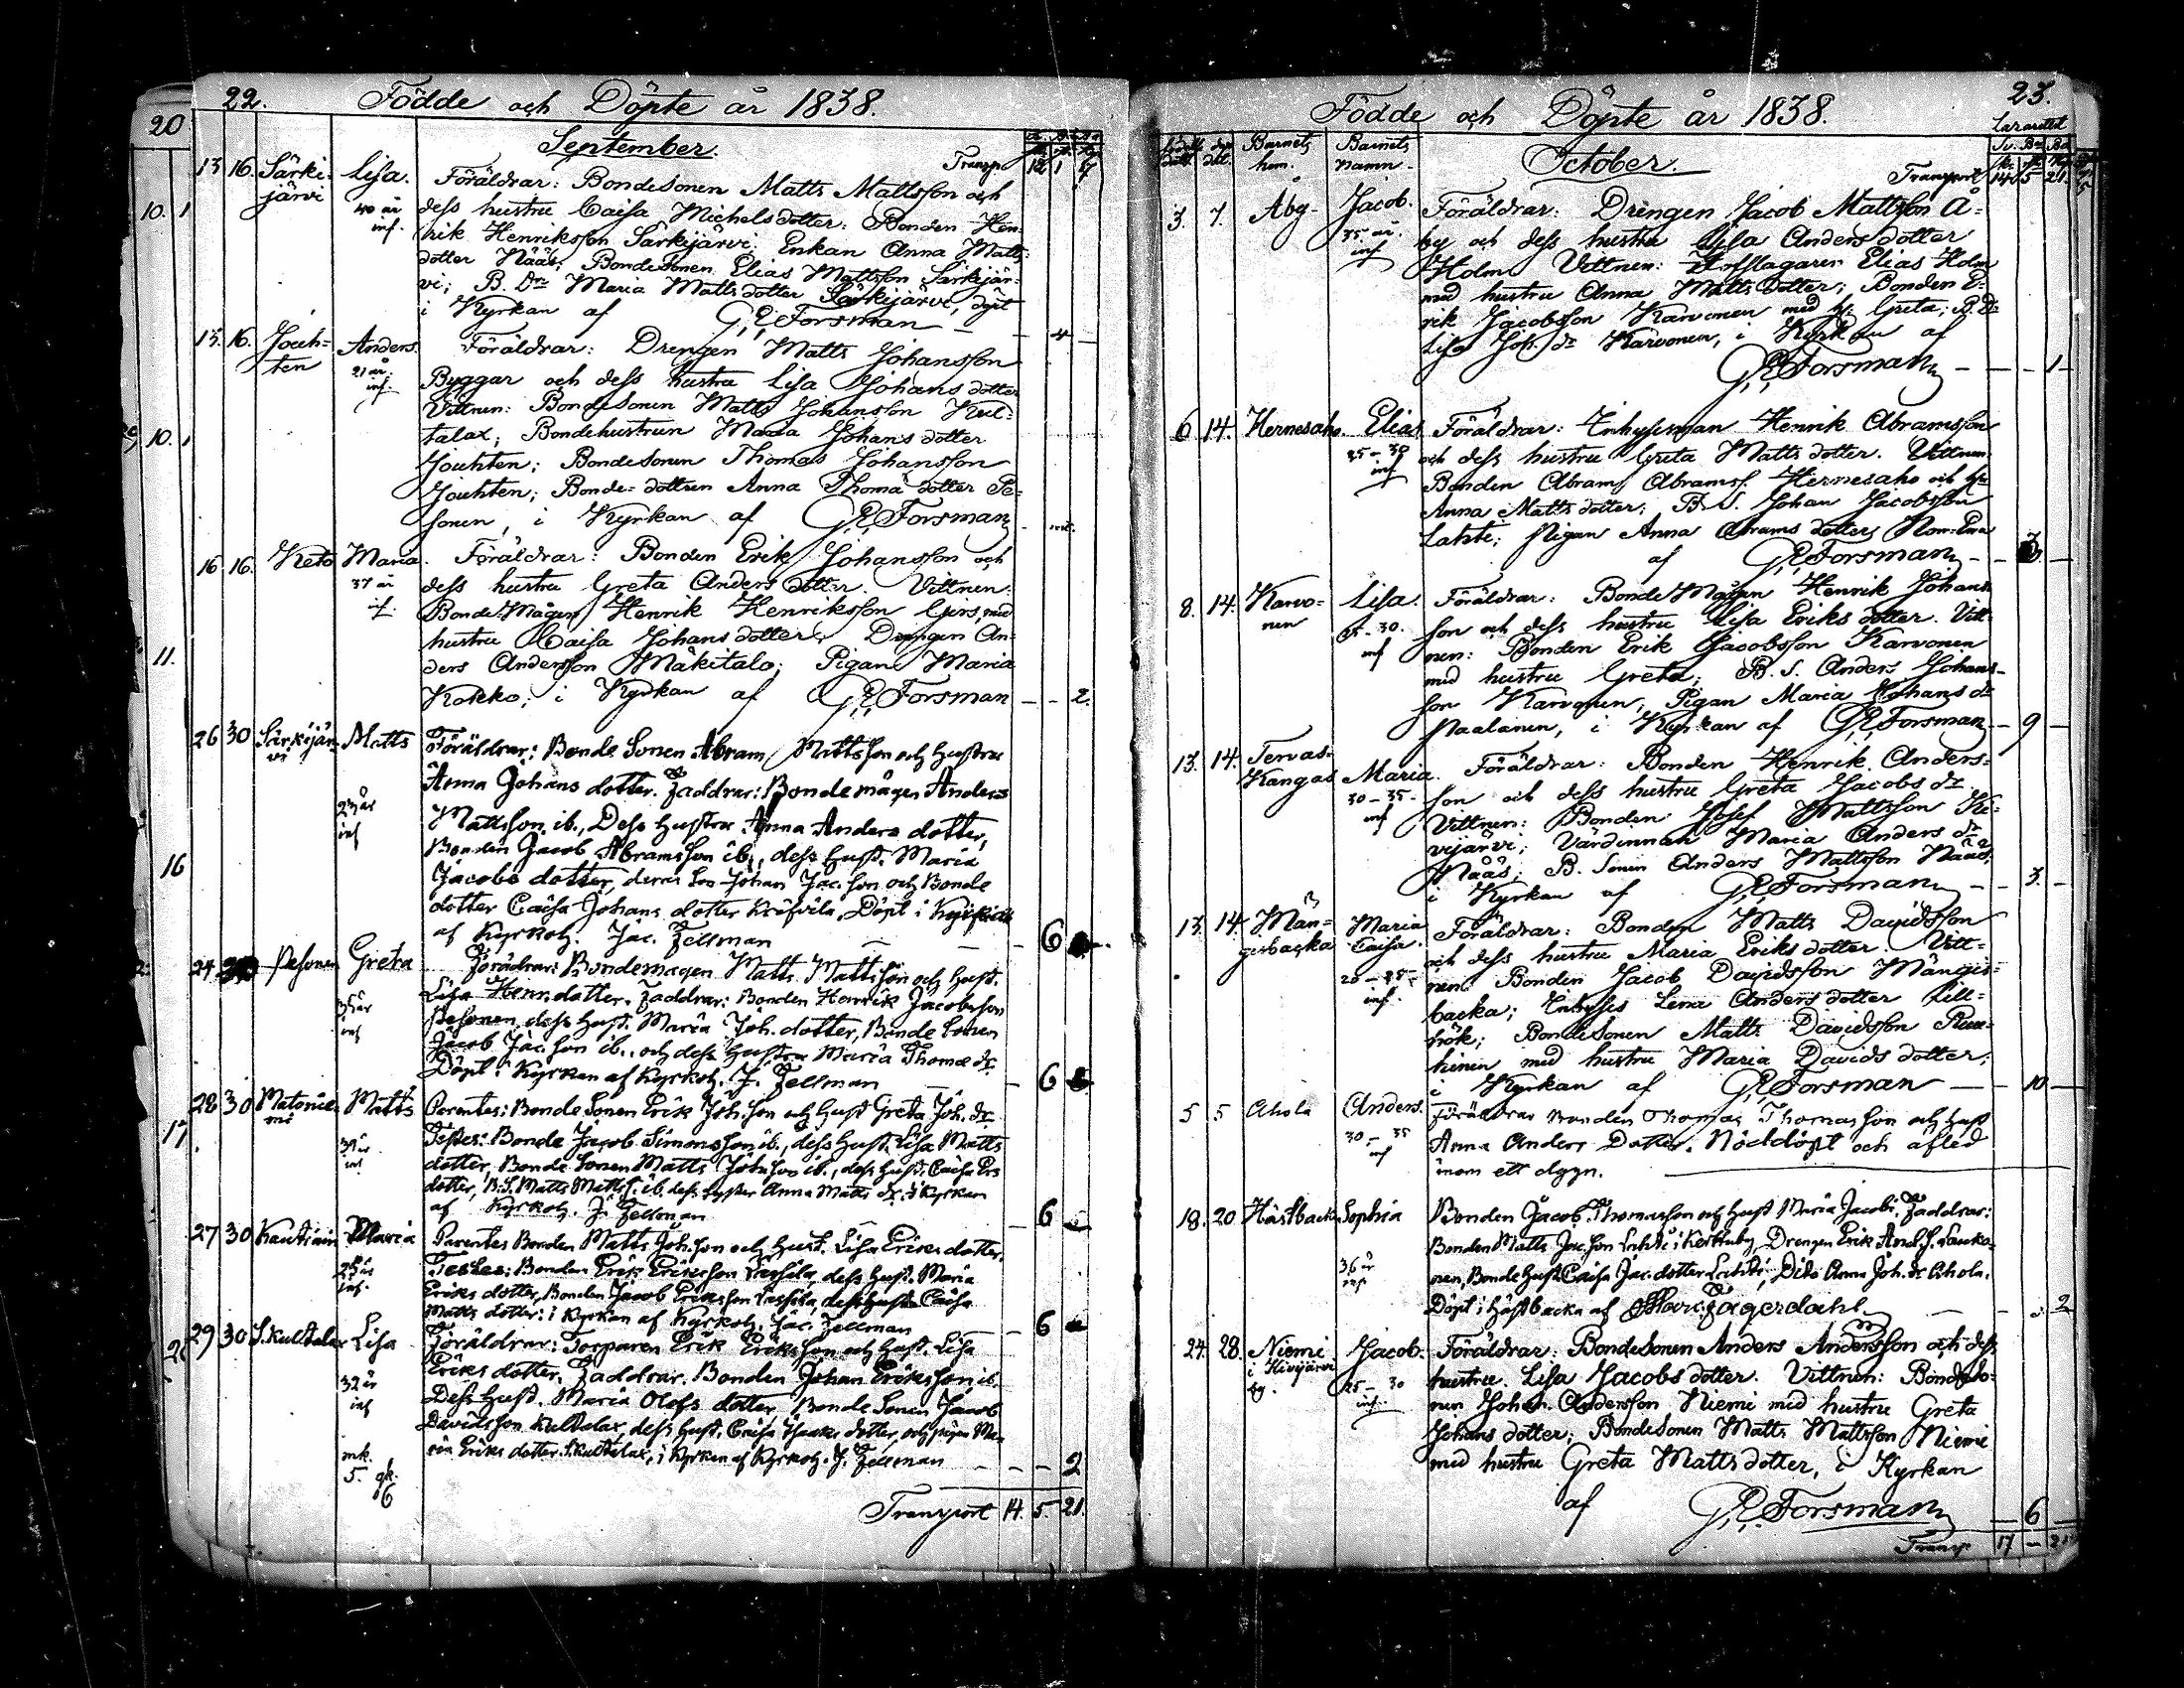 22.
Födde och Döpte år 1838.
20
September.
Transp. 12 1 9
13 16. Särki- Lisa. Föräldrar: Bondesonen Matts Mattsson och
järvi 40 år dess hustru Caisa Michels dotter: Bonden Hen-
10. 1 inf. rik Henriksson Särkijärvi; Enkan Anna Matts
dotter Nääs; Bondesonen Elias Mattsson Särkijär-
vi; B. Dr. Maria Matts dotter Särkijärvi, döpt
i Kyrkan af G. E. Forsman — — 4 —
13. 16. Jouh- Anders. Föräldrar: Drengen Matts Johansson
ten 21 år. Byggar och dess hustru Lisa Johans dotter
inf. Vittnen: Bondesonen Matts Johansson Kul-
10. 1 talax; Bondehustrun Maria Johans dotter
Jouhten; Bondesonen Thomas Johansson
Jouhten; Bonde-dottren Anna Thomæ dotter Pe-
sonen, i Kyrkan af G. E. Forsman
16 16. Keto Maria. Föräldrar: Bonden Erik Johansson och
37 år dess hustru Greta Anders dotter. Vittnen:
inf. Bonde-Mågen Henrik Henriksson Girs, med
hustru Caisa Johans dotter; Drengen An-
11. ders Andersson Mäkitalo; Pigan Maria
Kokko; i Kyrkan af G. E. Forsman — — 2.
26 30 Särkijär- Matts Föräldrar: Bonde Sonen Abram Mattsson och Hustru
vi Anna Johans dotter. Faddrar: Bondemågen Anders
23 år Mattsson ib., Dess Hustru Anna Anders dotter,
inf Bonden Jacob Abramsson ib., dess Hust. Maria
16 Jacobs dotter, deras Son Johan Jac. Son och Bonde
dotter Caisa Johans dotter, Döpt i Kyrkan
af Kyrkoh. Jac. Fellman — — — 6
24 Pesonen Greta Föräldrar: Bondemagen Matts Mattsson och Hust.
Lisa Henr. dotter. Faddrar: Bonden Henrik Jacobsson
35 år Pesonen, dess Hust. Maria Joh. dotter, Bonde Sonen
inf Jacob Jac. Son ib., och dess Hustru Maria Thomæ dr.
Döpt i Kyrkan af Kyrkoh. J. Fellman — 6
28 30 Matts Parentes: Bonde Sonen Erik Joh. Son och Hust Greta Joh. dr.
17 Testes: Bonde Jacob Simonsson ib., dess Hust. Lisa Matts
inf dotter, Bonde Sonen Matts Johsson ib., dess Hust. Caisa Ers
dotter, B.S. Matts Matts S. ib. dess Syster Anna Matts dr. i Kyrkan
af Kyrkoh. J. Fellman — 6
27 30 Kautiain Maria Parentes Bonden Matts Joh. Son och Hust. Lisa Eriks dotter.
Testes: Bonden Erik Eriksson Lassila, dess Hust. Maria
inf. Eriks dotter, Bonden Jacob Eriksson Lassila, dess Hust. Caisa
Matts dotter: i Kyrkan af Kyrkoh. Jac. Fellman — 6
29 30 S.kultalax Lisa Föräldrar: Torparen Erik Eriksson och Hust. Lisa
Eriks dotter. Faddrar. Bonden Johan Eriksson ib.
32 år Dess Hust. Maria Olofs dotter Bonde Sonen Jacob
inf Davidsson Kultalax, dess Hust. Caisa Isacks dotter, och pigan Ma-
mk. ria Eriks dotter S.kultalax, i Kyrkan af Kyrkoh. J. Fellman — — — 2
5. gk.
6
Transport 14. 5. 21.
23.
Födde och Döpte år 1838.
Födelse dop Barnets Barnets
dat. dat. hem. namn.
October.
Transport 14 5 21.
3. 7. Åby- Jacob. Föräldrar: Drengen Jacob Mattsson Å-
35 år. by och dess hustru Lisa Anders dotter
inf Holm Vittnen: Hofslagaren Elias Holm
med hustru Anna Matts dotter; Bonden E-
rik Jacobsson Karvonen med h. Greta; B. Dr
Lisa Joh. dr Karvonen, i Kyrkan af
G. E. Forsman — — — 1 —
6 14. Hernesaho. Elias Föräldrar: Inhysesman Henrik Abramsson
25 - 30 och dess hustru Greta Matts dotter. Vittnen:
inf Bonden Abram Abramss. Hernesaho och hu
Anna Matts dotter; B. S. Johan Jacobsson
Lahti; Pigan Anna Abrams dotter
af G. E. Forsman —
8. 14. Karvo- Lisa. Föräldrar: Bonde Mågen Henrik Johans
nen 25 - 30. son och dess hustru Lisa Eriks dotter. Vitt-
inf nen: Bonden Erik Jacobsson Karvonen
med hustru Greta; B. S. Anders Johans-
son Karvonen, Pigan Maria Johans dr
Paalanen, i Kyrkan af G. E. Forsman — 9 —
13. 14. Tervas- Maria. Föräldrar: Bonden Henrik Anders-
Kangas 30 - 35 - son och dess hustru Greta Jacobs dr
inf Vittnen: Bonden Josef Mattsson Ki-
vijärvi; Värdinnan Maria Anders dr
Nääs; B. Sonen Anders Mattsson Nääs;
i Kyrkan af G. E. Forsman — — 3. —
13. 14. Män- Maria Föräldrar: Bonden Matts Davidsson
gesbacka Caisa. och dess hustru Maria Eriks dotter. Vitt-
20 - 25 - nen: Bonden Jacob Davidsson Mänges-
inf. backa; Inhyses Lena Anders dotter Lill-
hök; Bondesonen Matts Davidsson
hinen med hustru Maria Davids dotter;
i Kyrkan af G. E. Forsman — — 10 —
5 5 Ahola Anders. Föräldrar Bonden Thomas Thomasson och Hust
30 - 35 Anna Anders Dotter. Nöddöpt och afled
inf inom ett dygn.
18. 20 Hästbacka Sophia Bonden Jacob Thomasson och Hust Maria Jacobs; Faddrar:
Bonden Matts Jac. Son Lahti i Kortteby, Drengen Erik And. S. Lauka-
36 år nen, Bonde Hust. Caisa Jac. dotter Lahti, Dito Anna Joh. dr Ahola.
Döpt i Hästbacka af Fagerdahl — — 2
24. 28. Niemi Jacob. Föräldrar: Bondesonen Anders Andersson och dess
i Kivijärvi 25 - 30 hustru Lisa Jacobs dotter. Vittnen: Bondeso-
by. inf. nen Johan Andersson Niemi med hustru Greta
Johans dotter; Bondesonen Matts Mattsson Niemi
med hustru Greta Matts dotter, i Kyrkan
af G. E. Forsman — 6 —
Transp 17 — 21